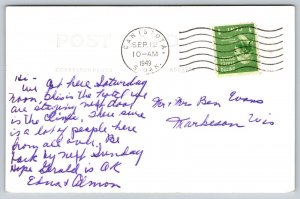 POST
CANISTOTA
SEP 12
10-AM
1949
S. DAK.
Hi-
We got here Saturday
noon, this is the hotel we
are staying next door
is the clinic, there sure
is a lot of people here
from all over. Be
back by next Sunday
Hope Gerald is OK
Edna & Almon
Mr + Mrs Ben Evans
Markesan Wis